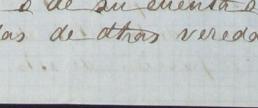 s de su cuenta s
las de dhas vereda